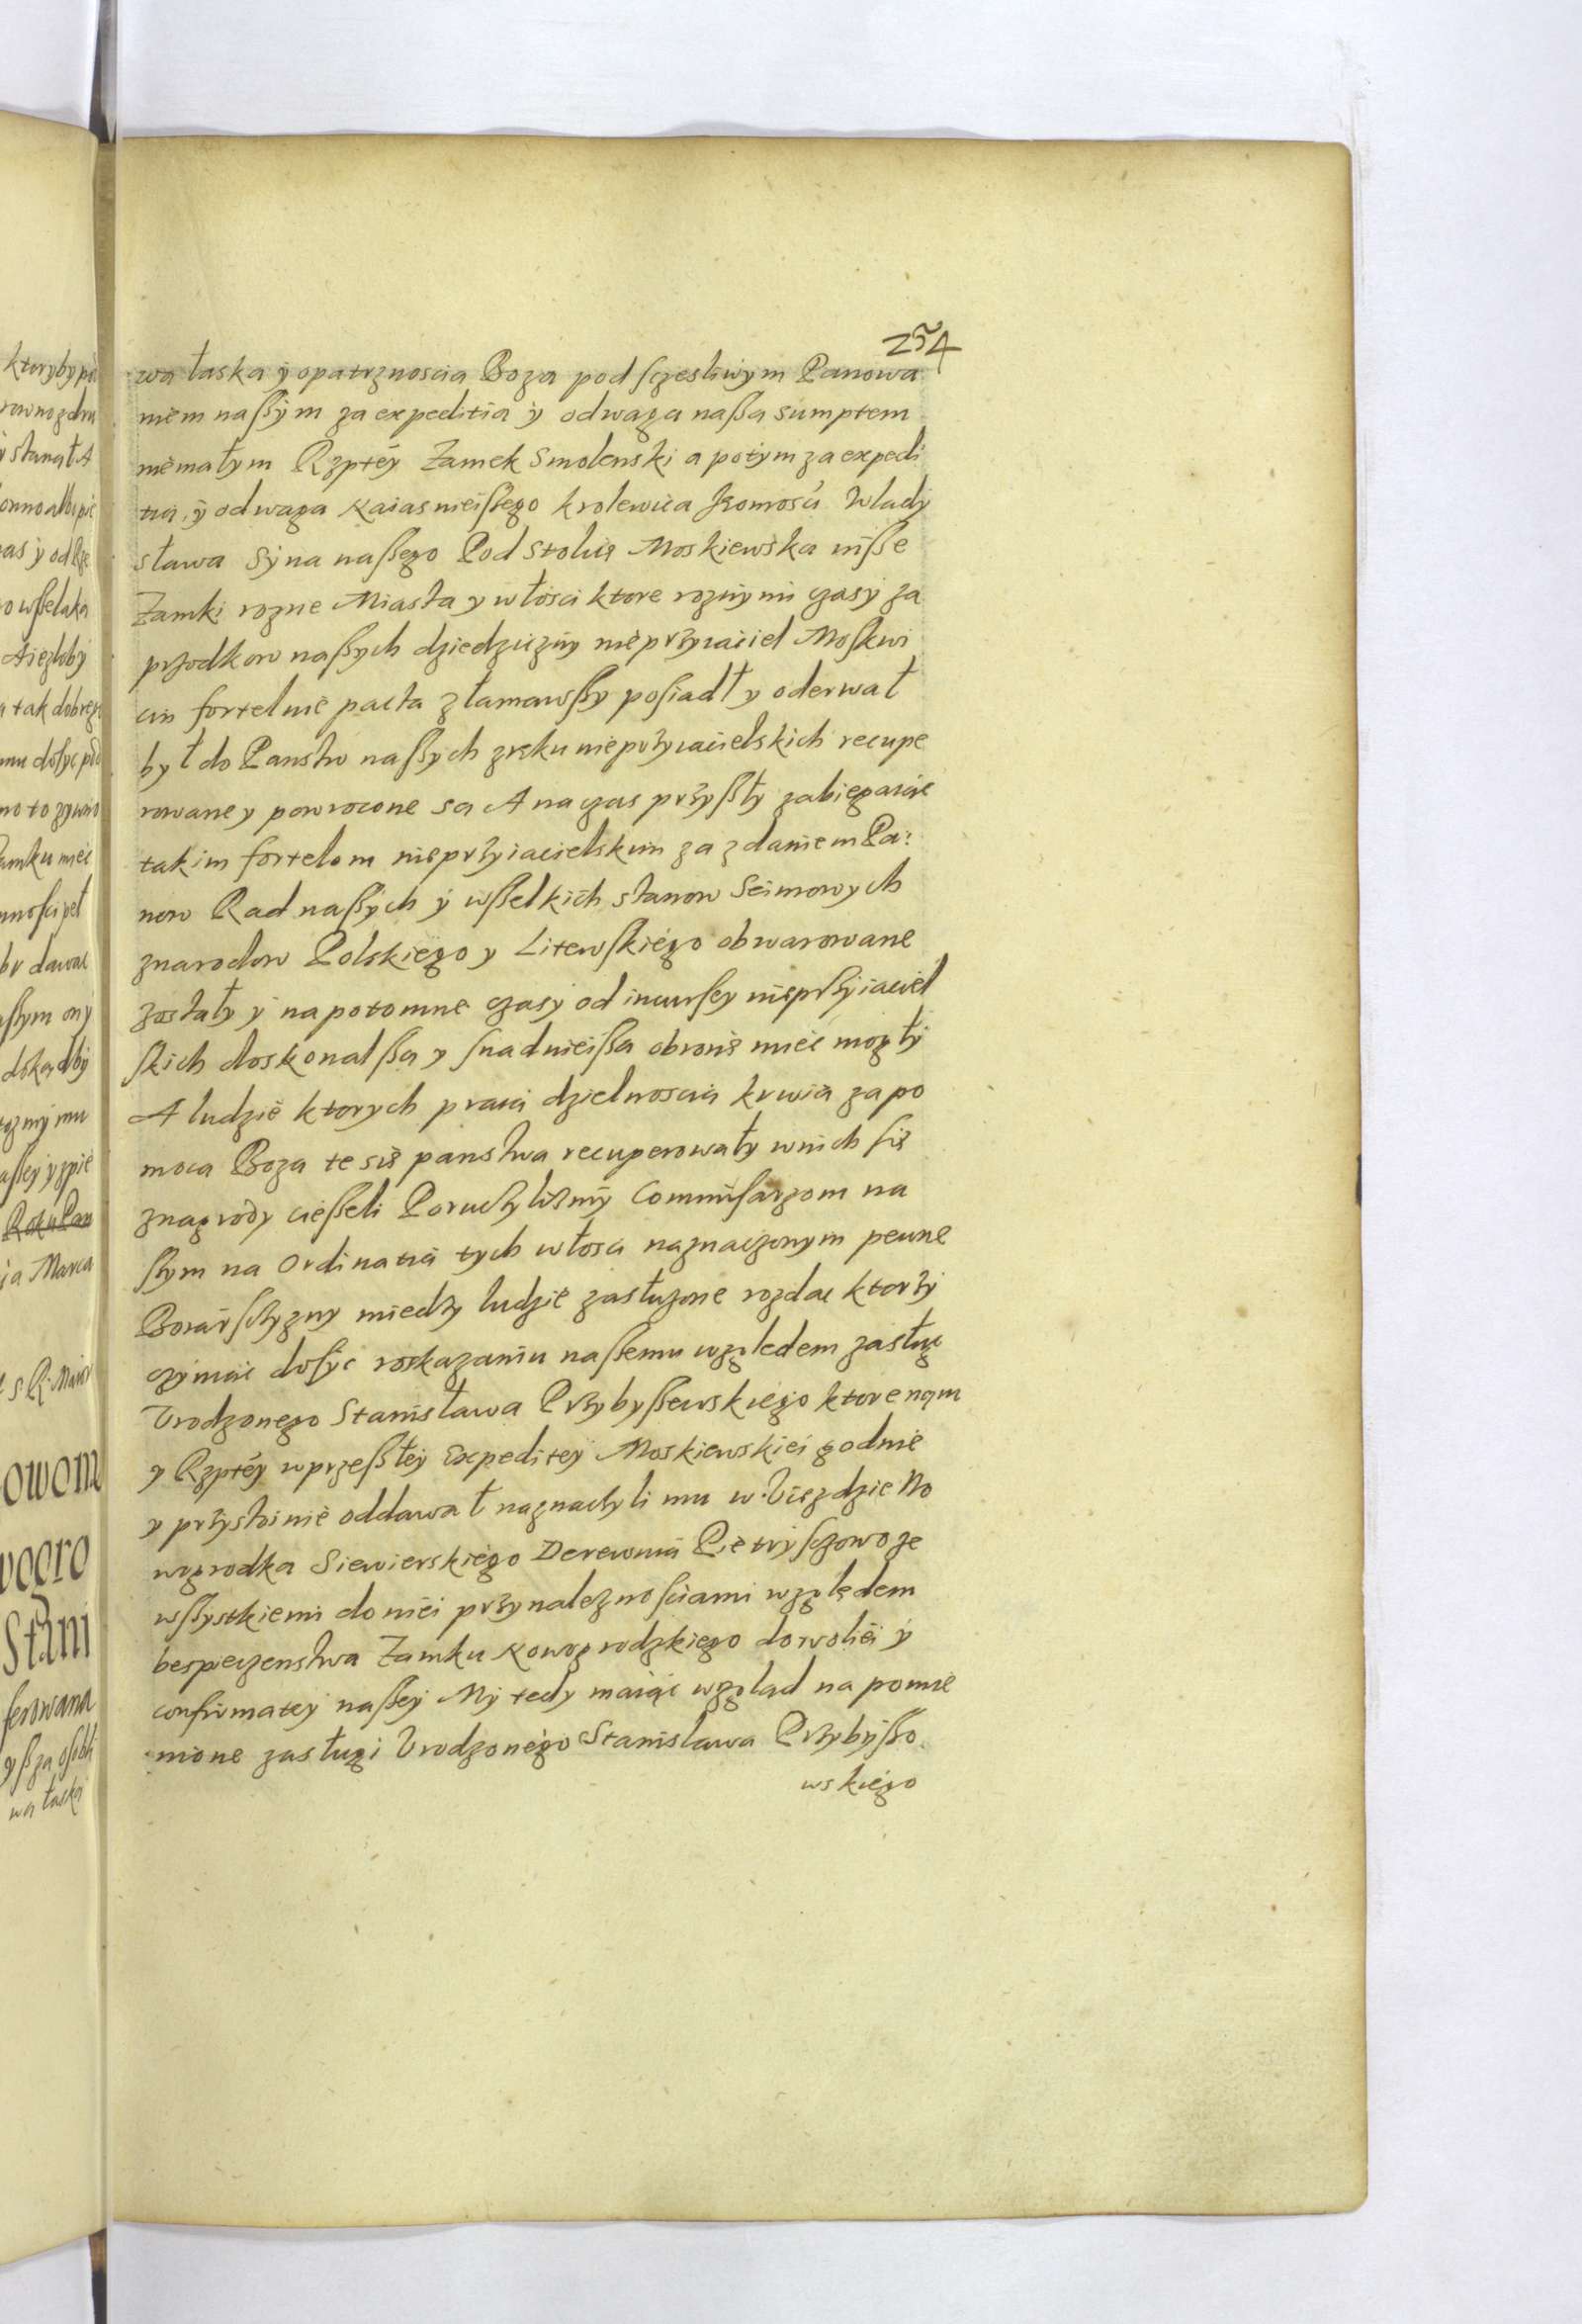 254
wa łaska y opatrznoscia Boza pod sczesliwym Panowa
niem naßym za expeditia y odwaga naßa sumptem
niemałym Rzptey Zamek Smolenski a potym za expedi
tią y odwaga Naiasnieißego krolewica Jeomosci Wlady
sława Syna naßego Pod Stolicą Moskiewska insße
Zamki rozne Miasta y włosci ktore roznymi czasy za
przodkow naßych dziedziczny nieprzyiaciel Moskwi
cin fortelnie pacta złamawßy posiadł y oderwał
był do Panstw naßych z ręku nieprzyiacielskich recupe
rowane y powrocone sa A na czas przyßły zabiegaiąc
takim fortelom nieprzyiacielskim za zdaniem Pa:
now Rad naßych y wßelkich stanow Seimowych
z narodow Polskiego y Litewskiego obwarowane
zostały y na potomne czasy od incursey nieprzyiaciel
skich doskonalßa y snadnieißa obronę miec mogły
A ludzie ktorych praca dzielnoscia krwia za po
moca Boza te się panstwa recuperowały w nich się
z nagrody cießeli Poruczylismy Commissarzom na
ßym na Ordinatią tych włosci naznaczonym pewne
Boiarsczyzny miedzy ludzie zasłuzone rozdac ktorzy
czyniąc dosyc roskazaniu naßemu względem zasług
Vrodzonego Stanisława Przybyßewskiego ktore nąm
y Rzptey w przeßłey Expeditey Moskiewskiei godnie
y przystoinie oddawał naznaczyli mu w Vięzdzie No
wgrodka Siewierskiego Derewnią Pietrysczowo ze
wßystkiemi do niei przynaleznosciami względem
bespieczenstwa Zamku Nowogrodzkiego do woliei y
confirmatey naßey My tedy maiąc wzgląd na pomie
nione zasługi Vrodzonego Stanislawa Przybyßo
wskiego